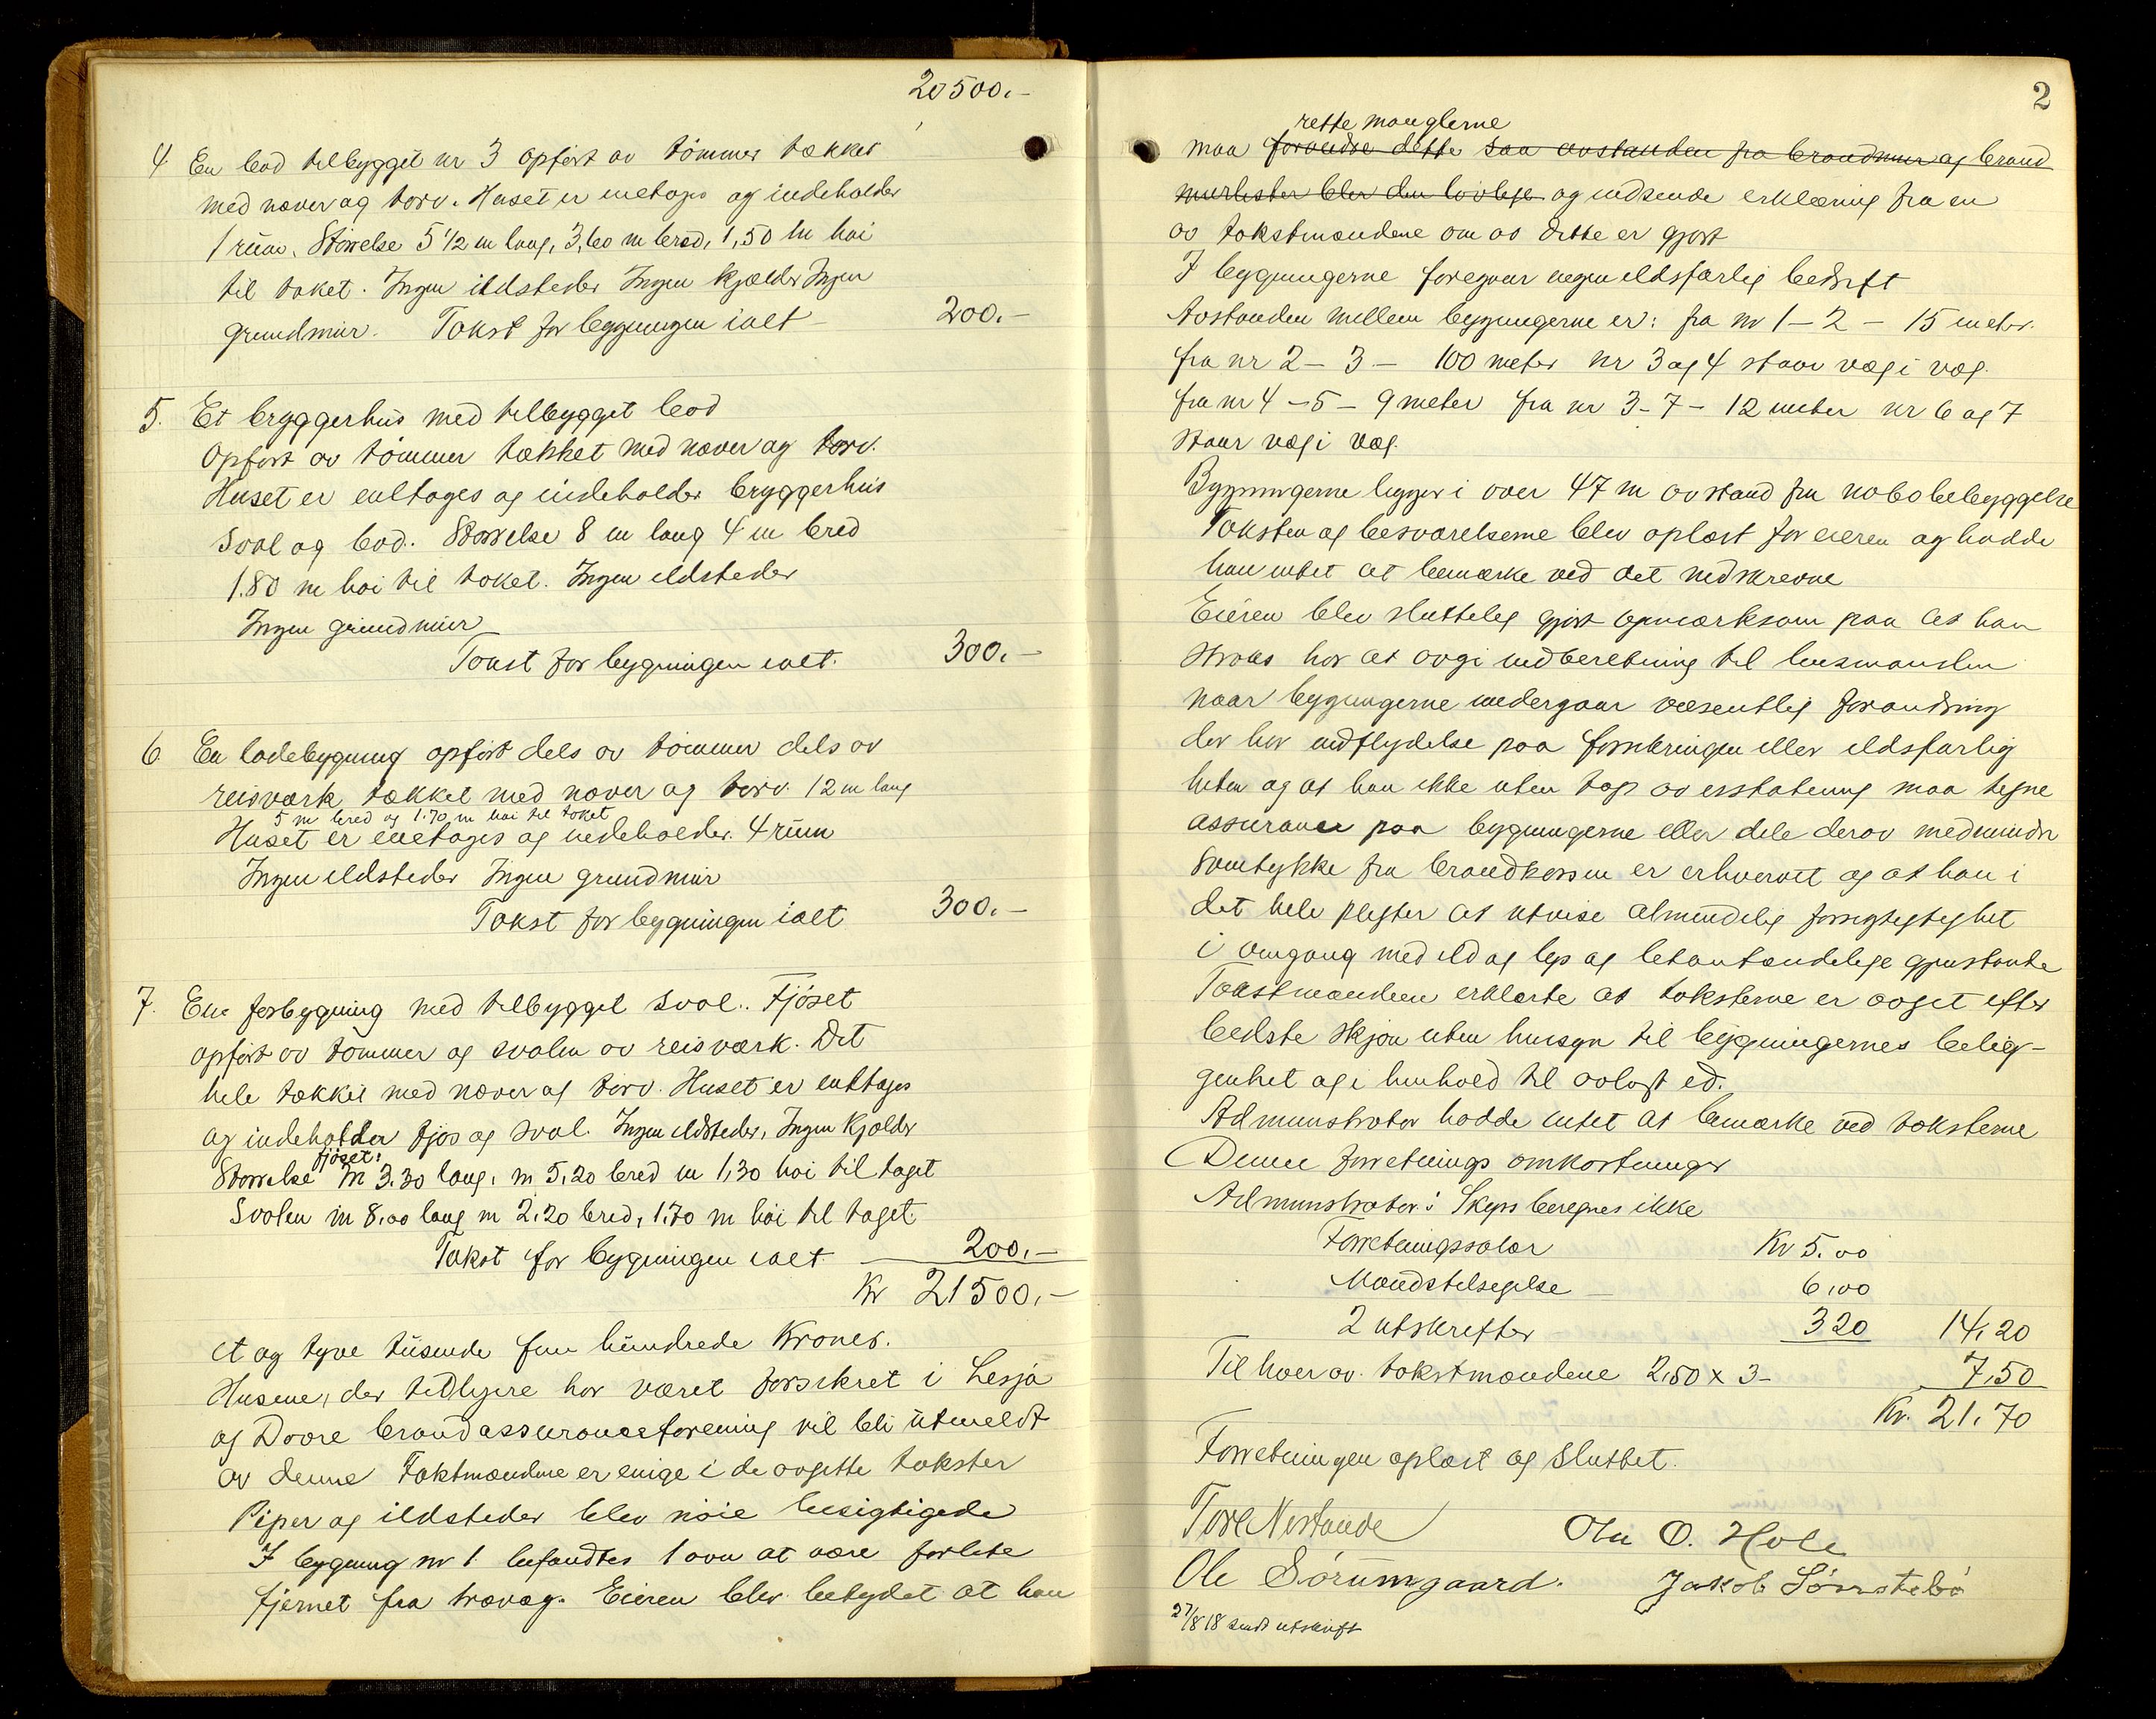 20500.-
4 En bod tilbygget nr 3 opført av tømmer tækket
med næver og torv. Huset er enetages og indeholder
1 rum. Størrelse 5 1/2 m lang, 3,60 m bred, 1,50 m høi
til taket. Ingen ildsteder Ingen kjælder Ingen
grundmur. Takst for bygningen ialt 200.-
5. Et bryggerhus med tilbygget bod
Opført av tømmer tækket med næver og torv.
Huset er entages og indeholder bryggerhus
sval og bod. Størrelse 8 m lang 4 m bred
1.80 m høi til taket. Ingen ildsteder
Ingen grundmur
Takst for bygningen ialt. 300.-
6. En ladebygning opført dels av tømmer dels av
reisværk tækket med næver og torv. 12 m lang
5 m bred og 1.70 m høi til taket
Huset er enetages og indeholder. 4 rum
Ingen ildsteder Ingen grundmur
Takst for bygningen ialt 300.-
7. En fjøsbygning med tilbygget sval.. Fjøset
opført av tømmer og svalen av reisværk. Det
hele tækket med næver og torv. Huset er entages
og indeholder fjøs og sval. Ingen ildsteder, Ingen Kjælder
fjøset:
Størrelse m 3.30 lang, m 5,20 bred m 1,30 høi til taget
Svalen m 8,00 lang m 2,20 bred, 1.70 m høi til taget.
Takst for bygningen ialt 200,-
Kr 21500,-
et og tyve tusende fem hundrede Kroner.
Husene, der tidligere har været forsikret i Lesja
og Dovre brandassuranceforening vil bli utmeldt
av denne Takstmændene er enige i de avgitte takster
Piper og ildsteder blev nøie besigtigede
I bygning nr 1 befandtes 1 ovn at være forlite
fjernet fra trævæg. Eieren blev betydet at han
2
rette manglerne
maa forandre dette saa avstanden fra brandmur og brand
murlister blev den lovlige og indsende erklæring fra en
av takstmændene om at dette er gjort
I bygningerne foregaar ingen ildsfarlig bedrift
Avstanden mellem bygningerne er: fra nr 1-2 - 15 meter.
fra nr 2-3 - 100 meter nr 3 og 4 staar væg i væg.
fra nr 4-5 - 9 meter fra nr 3-7 - 12 meter nr 6 og 7
staar væg i væg.
Bygningerne ligger i over 47 m avstand fra nabobebyggelse
Taksten og besvarelserne blev oplæst for eieren og hadde
han intet at bemærke ved det nedskrevne
Eieren blev sluttelig gjort opmærksom paa at han
straks har at avgi indberetning til lensmanden
naar bygningerne undergaar væsentlig forandring
der har indflydelse paa forsikringen eller ildsfarlig
heten og at han ikke uten tap av erstatning maa tegne
assurance paa bygningerne eller dele derav medmindre
samtykke fra brandkassen er erhvervet og at han i
det hele pligter at utvise almindelig forsigtighet
i omgang med ild og lys og letantændelige gjenstande
Takstmændene erklærte at taksterne er avgit efter
bedste skjøn uten hensyn til bygningernes belig-
genhet og i henhold til avlagt ed.
Administrator hadde intet at bemærke ved taksterne
Denne forretnings omkostninger
Administrator: Skyss beregnes ikke
Forretningssalær Kr 5.00
Mandstilsigelse 6,00
2 utskrifter 3 20 14,20
Til hver av takstmændene 2,50 x 3 - 7,50
Kr. 21,70
Forretningen oplæst og sluttet.
Tore Nestande Ola O. Hole
Ole Sørumgaard. Jakob Sønstebø
27/8 18 sendt utskrift